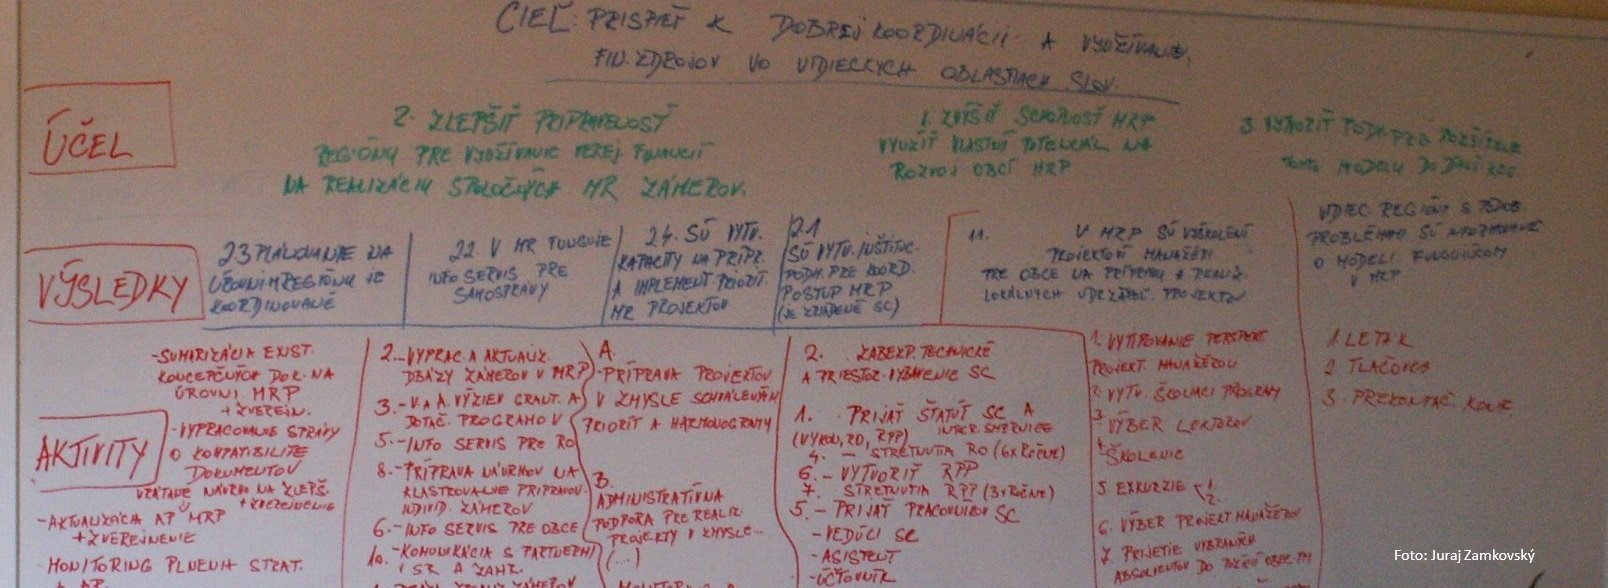 CIEĽ: PRISPIEŤ K DOBREJ KOORDINÁCII A VYUŽÍVANIU
FIN. ZDROJOV VO VIDIECKYCH OBLASTIACH SLOV.
ÚČEL
2. ZLEPŠIŤ PRIPRAVENOSŤ
REGIÓNU PRE VYUŽÍVANIE VEREJ. FINANCIÍ
NA REALIZÁCIU SPOLOČNÝCH MR ZÁMEROV.
1. ZVÝŠIŤ SCHOPNOSŤ MRP
VYUŽÍŤ VLASTNÝ POTENCIÁL NA
ROZVOJ OBCÍ MRP
3. VYTVORIŤ PODM. PRE ROZŠÍRENIE
TOHTO MODELU DO ĎALŠ. REG.
VÝSLEDKY
23 PLÁNOVANIE NA
ÚROVNI MREGIÓNU JE
KOORDINOVANÉ
22. V MR FUNGUJE
INFO SERVIS PRE
SAMOSPRÁVY
24. SÚ VYTV.
KAPACITY NA PRÍPR.
A IMPLEMENT. PRIORIT
MR PROJEKTOV
21
SÚ VYTV. INŠTITUC.
PODM. PRE KOORD.
POSTUP MRP
(JE ZRIADENÉ SC)
11. V MRP SÚ VYŠKOLENÍ
PROJEKTOVÍ MANAŽÉRI
PRE OBCE NA PRÍPRAVU A REALIZ.
LOKÁLNYCH UDRŽATEĽ. PROJEKTOV
VIDIEC. REGIÓNY S PODOB.
PROBLÉMAMI SÚ INFORMOVANÉ
O MODELI FUNGUJÚCOM
V MRP
AKTIVITY
-SUMARIZÁCIA EXIST.
KONCEPČNÝCH DOK. NA
ÚROVNI MRP
+ ZVEREJN.
-VYPRACOVANIE SPRÁVY
O KOMPATIBILITE
DOKUMENTOV
VRÁTANE NÁVRHU NA ZLEPŠ.
+ ZVEREJNENIE
-AKTUALIZÁCIA AP MRP
+ ZVEREJNENIE
-MONITORING PLNENIA STRAT.
+ AP
2.-VYPRAC. A AKTUALIZ.
DBÁZY ZÁMEROV V MRP
3.-V. A A. VÝZIEV GRANT. A
DOTAČ. PROGRAMOV
5.-INFO SERVIS PRE RO
8.-PRÍPRAVA NÁVRHOV NA
KLASTROVANIE PRIPRAVOV.
INDIVID. ZÁMEROV
6.-INFO SERVIS PRE OBCE
10.-KOMUNIKÁCIA S PARTNERMI
V SR A ZAHR.
A.
-PRÍPRAVA PROJEKTOV
V ZMYSLE SCHVÁLENÝCH
PRIORÍT A HARMONOGRAMU
B.
ADMINISTRATÍVNA
PODPORA PRE REALIZ.
PROJEKTY V ZMYSLE-
(...)
2. ZABEZP. TECHNICKÉ
A PRIESTOR. VYBAVENIE SC
1. PRIJAŤ ŠTATÚT SC A
INTER. SMERNICE
(VÝKON, RO, RPP)
4. - STRETNUTIA RO (6X ROČNE)
6.- VYTVORIŤ RPP
7. STRETNUTIA RPP (3x ROČNE)
5.- PRIJAŤ PRACOVNÍKOV SC
-VEDÚCI SC
-ASISTENT
-ÚČTOVNÍK
1. VYTIPOVANIE PERSPEKT.
PROJEKT. MANAŽÉROV
2. VYTV. ŠKOLIACI PROGRAM
3. VÝBER LEKTOROV
4. ŠKOLENIE
5. EXKURZIE 1. 2.
6. VÝBER PROJEKT. MANAŽÉROV
7. PRIJETIE VYBRANÝCH
ABSOLVENTOV DO
1. LETÁK
2. TLAČOVKA
3. PREZENTAČ. KONF.
Foto: Juraj Zamkovský